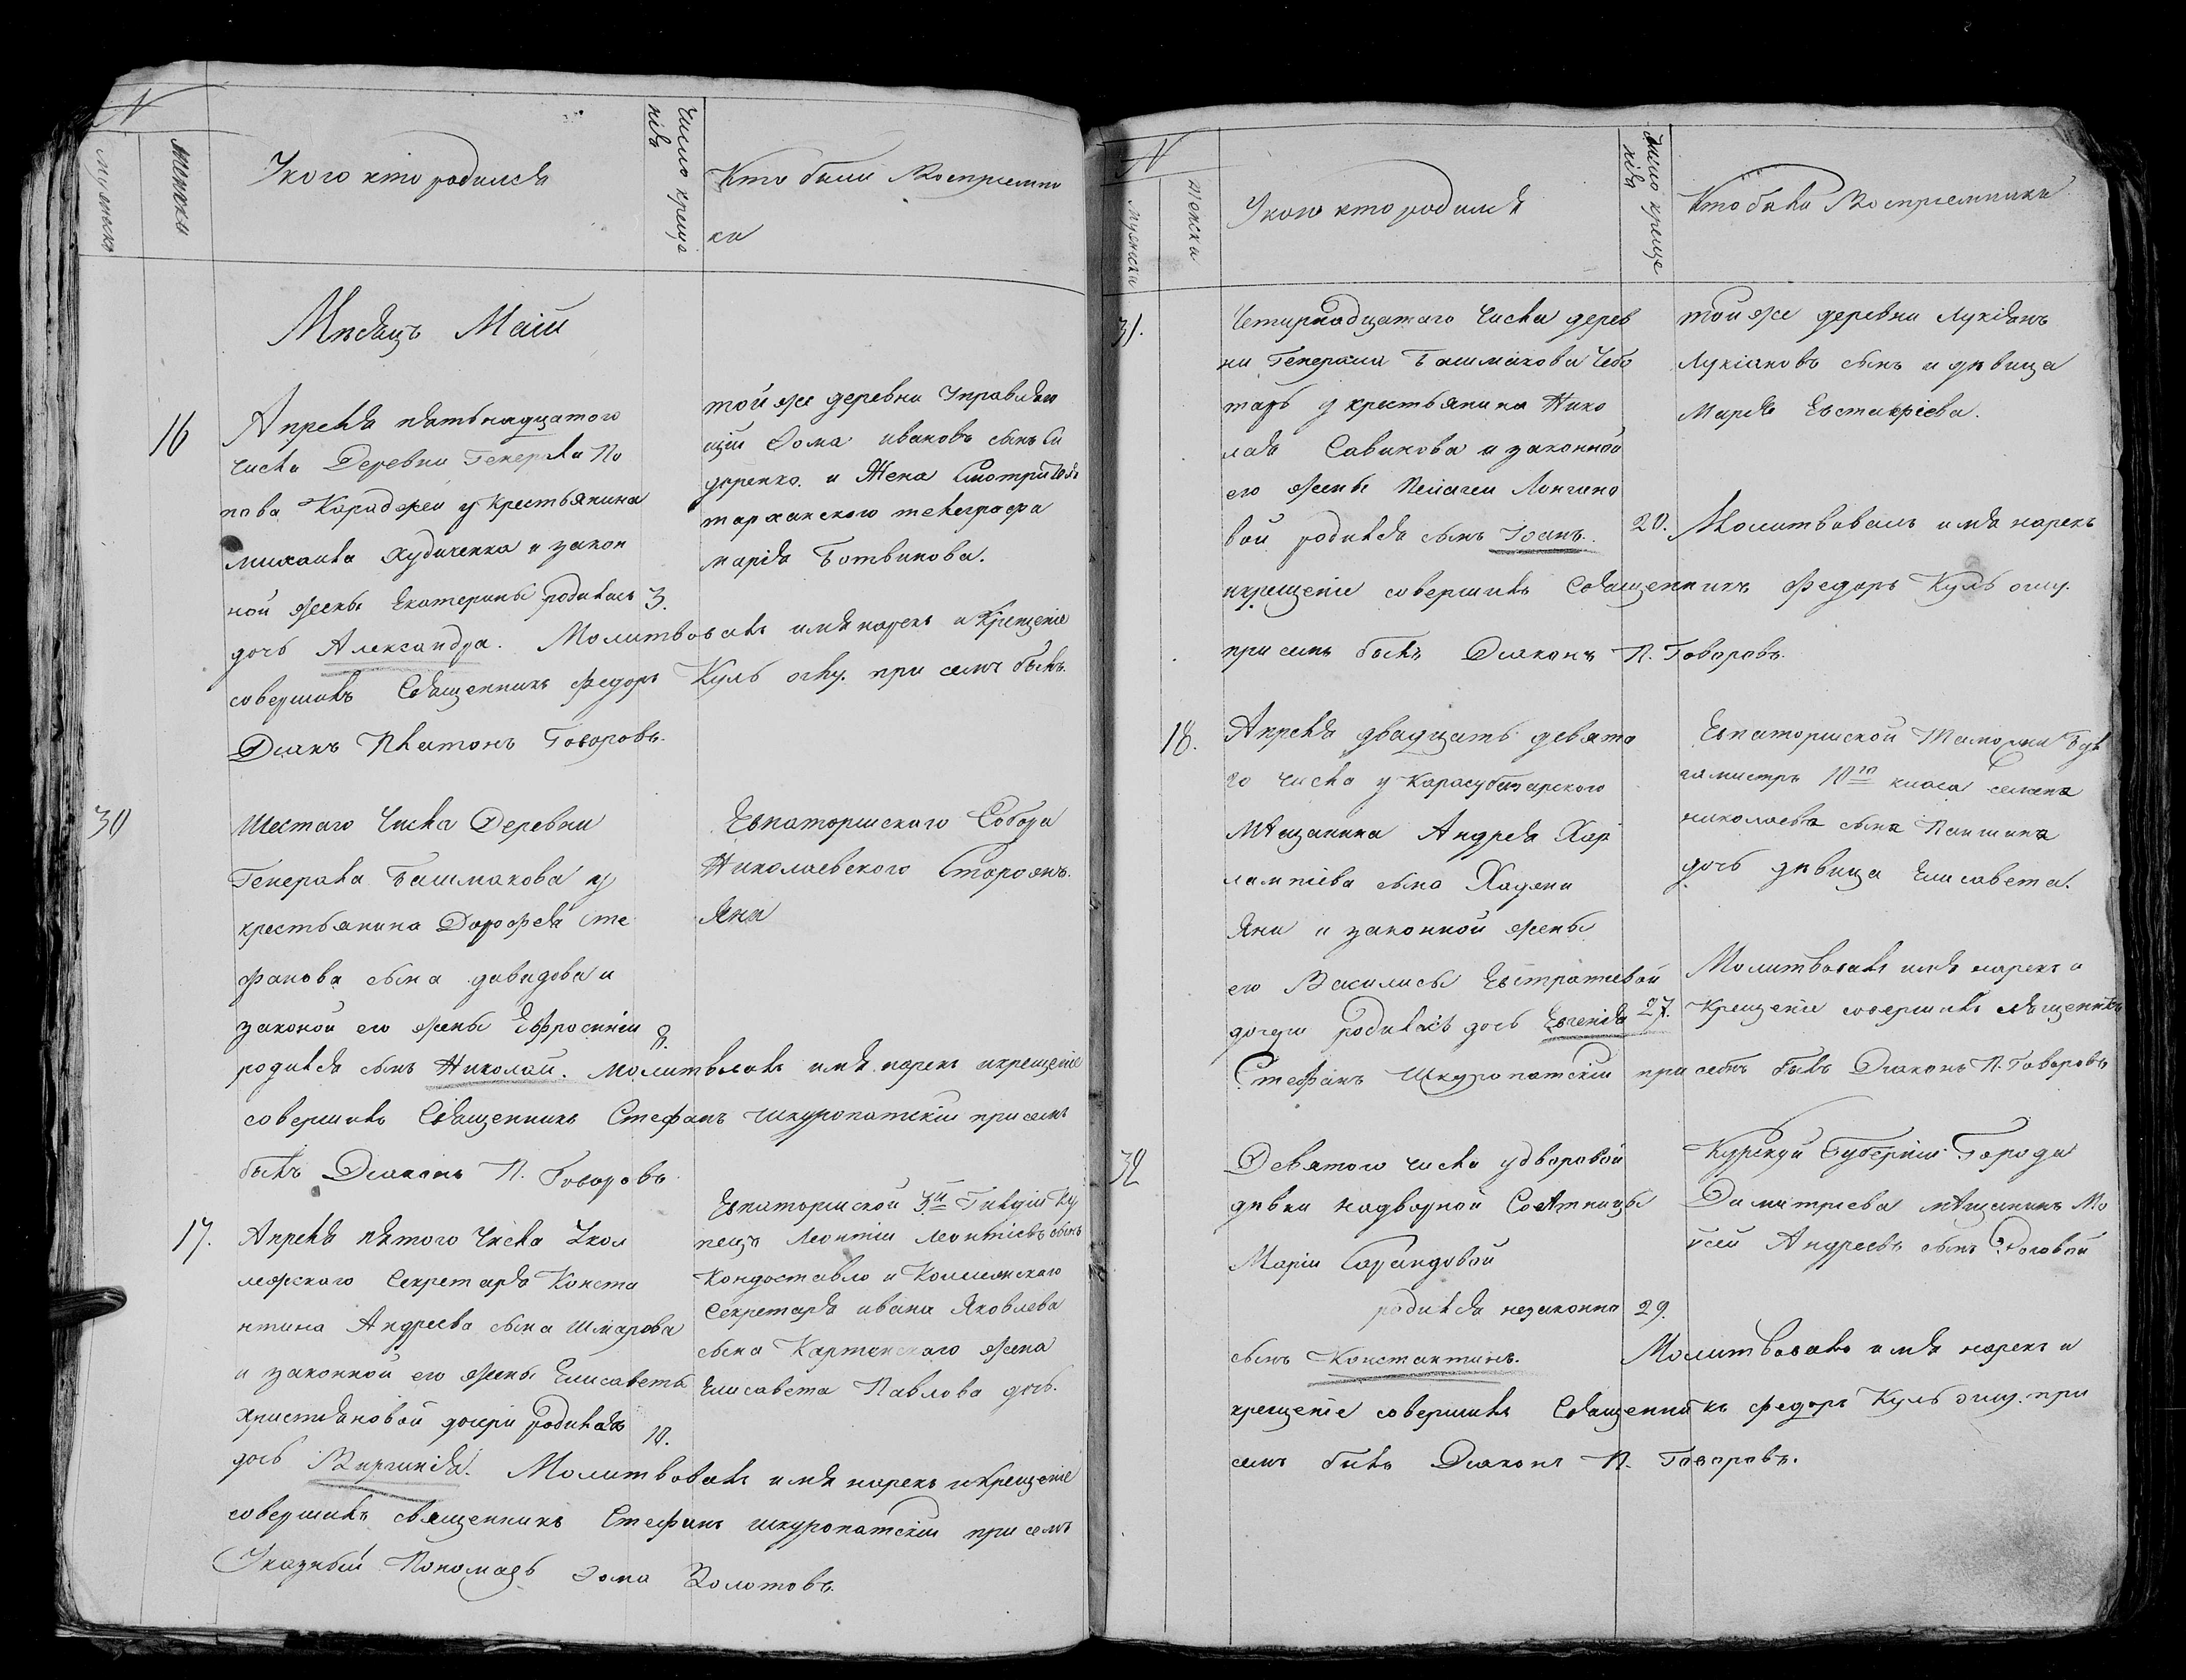 N
Мужеска
Женска
У кого кто родился
Число креще
нія
Кто были Воспріемни
ки
Мѣсяцъ Маій
16
Апреля пятьнадцатого
числа Деревни Генерала По
пова Караджеи у Крестьянина
михаила Худиченка и закон
ной жены Екатерины родилась
дочь Александра. Молитвовалъ имя нарекъ и Крещеніе
совершилъ Священникъ Федоръ Куль оглу. при семъ былъ
Диакъ Платонъ Говоровъ.
3.
той же деревни Управляю
щій Фома ивановъ сынъ Си
доренко. и Жена Смотрителя
тарханского телеграфа
марія Ботвинова.
30
Шестаго Числа Деревни
Генерала Башмакова у
крестьянина Дорофея Сте
фанова сына давидова и
законой его жены Ефросиніи
родился сынъ Николай. молитвовалъ имя нарекъ и крещеніе
совершилъ Священникъ Стефанъ Шкуропатскій при семъ
былъ Диаконъ П. Говоровъ
8.
Евпаторискаго Собора
Николаевского Сторожъ.
Яни
17.
Апреля пятого Числа Укол
лежского Секретаря Конста
нтина Андреева сына Шмарова
и законной его жены Елисаветы
Християновой дочери родилась
дочь Виргинія. Молитвовалъ имя нарекъ и Крещеніе
совершилъ священникъ Стефанъ шкуропатскій при семъ
Указный Пономарь Фома Золотовъ.
10.
Евпаториской 3й Гилдіи Ку
пецъ Леонтій Леонтіевъ сынъ
Кондоставло и Коллежскаго
Секретаря ивана Яковлева
сына Картинскаго жена
Елисавета Павлова дочь.
N
Мужески
Женски
У кого кто родился
Число креще
нія
Кто были Воспріемники
31.
Четирнадцатаго Числа дерев
ни Генерала Башмакова Чебо
тарь у крестьянина Нико
лая Савинова и законной
его жены Пелагеи Лонгино
вой родился сынъ Іоанъ.
20. Молитвовалъ имя нарекъ
и крещеніе совершилъ Священникъ Федоръ Куль оглу.
при семъ былъ Диаконъ П. Говоровъ.
той же деревни Лукіянъ
Лукіановъ сынъ и девица
Марія Евстафіева.
18.
Апреля двадцать девято
го числа у Карасубазарского
Мѣщанина Андрея Хар
лампіева сына Хаджи
Яни и законной жены
его Василисы Евстратіевой
дочери родилась дочь Евгенія
27.
Евпаториской Таможни Бух
галмистръ 10го класа семена
николаева сына Паншина
дочь девица Елисавета.
Молитвовалъ имя нарекъ и
Крещеніе совершилъ священникъ
Стефанъ Шкуропатскій при семъ былъ Диаконъ П. Говоровъ
32
Девятого числа у дворовой
девки надворной Советницы
Маріи
родился незаконно
сынъ Константинъ.
29.
Курской Губерніи Города
Димитриева мѣщанинъ Мо
исей Андреевъ сынъ Роговой
Молитвовалъ имя нарекъ и
крещеніе совершилъ Священникъ федоръ Куль оглу. при
семъ былъ Диаконъ П. Говоровъ.